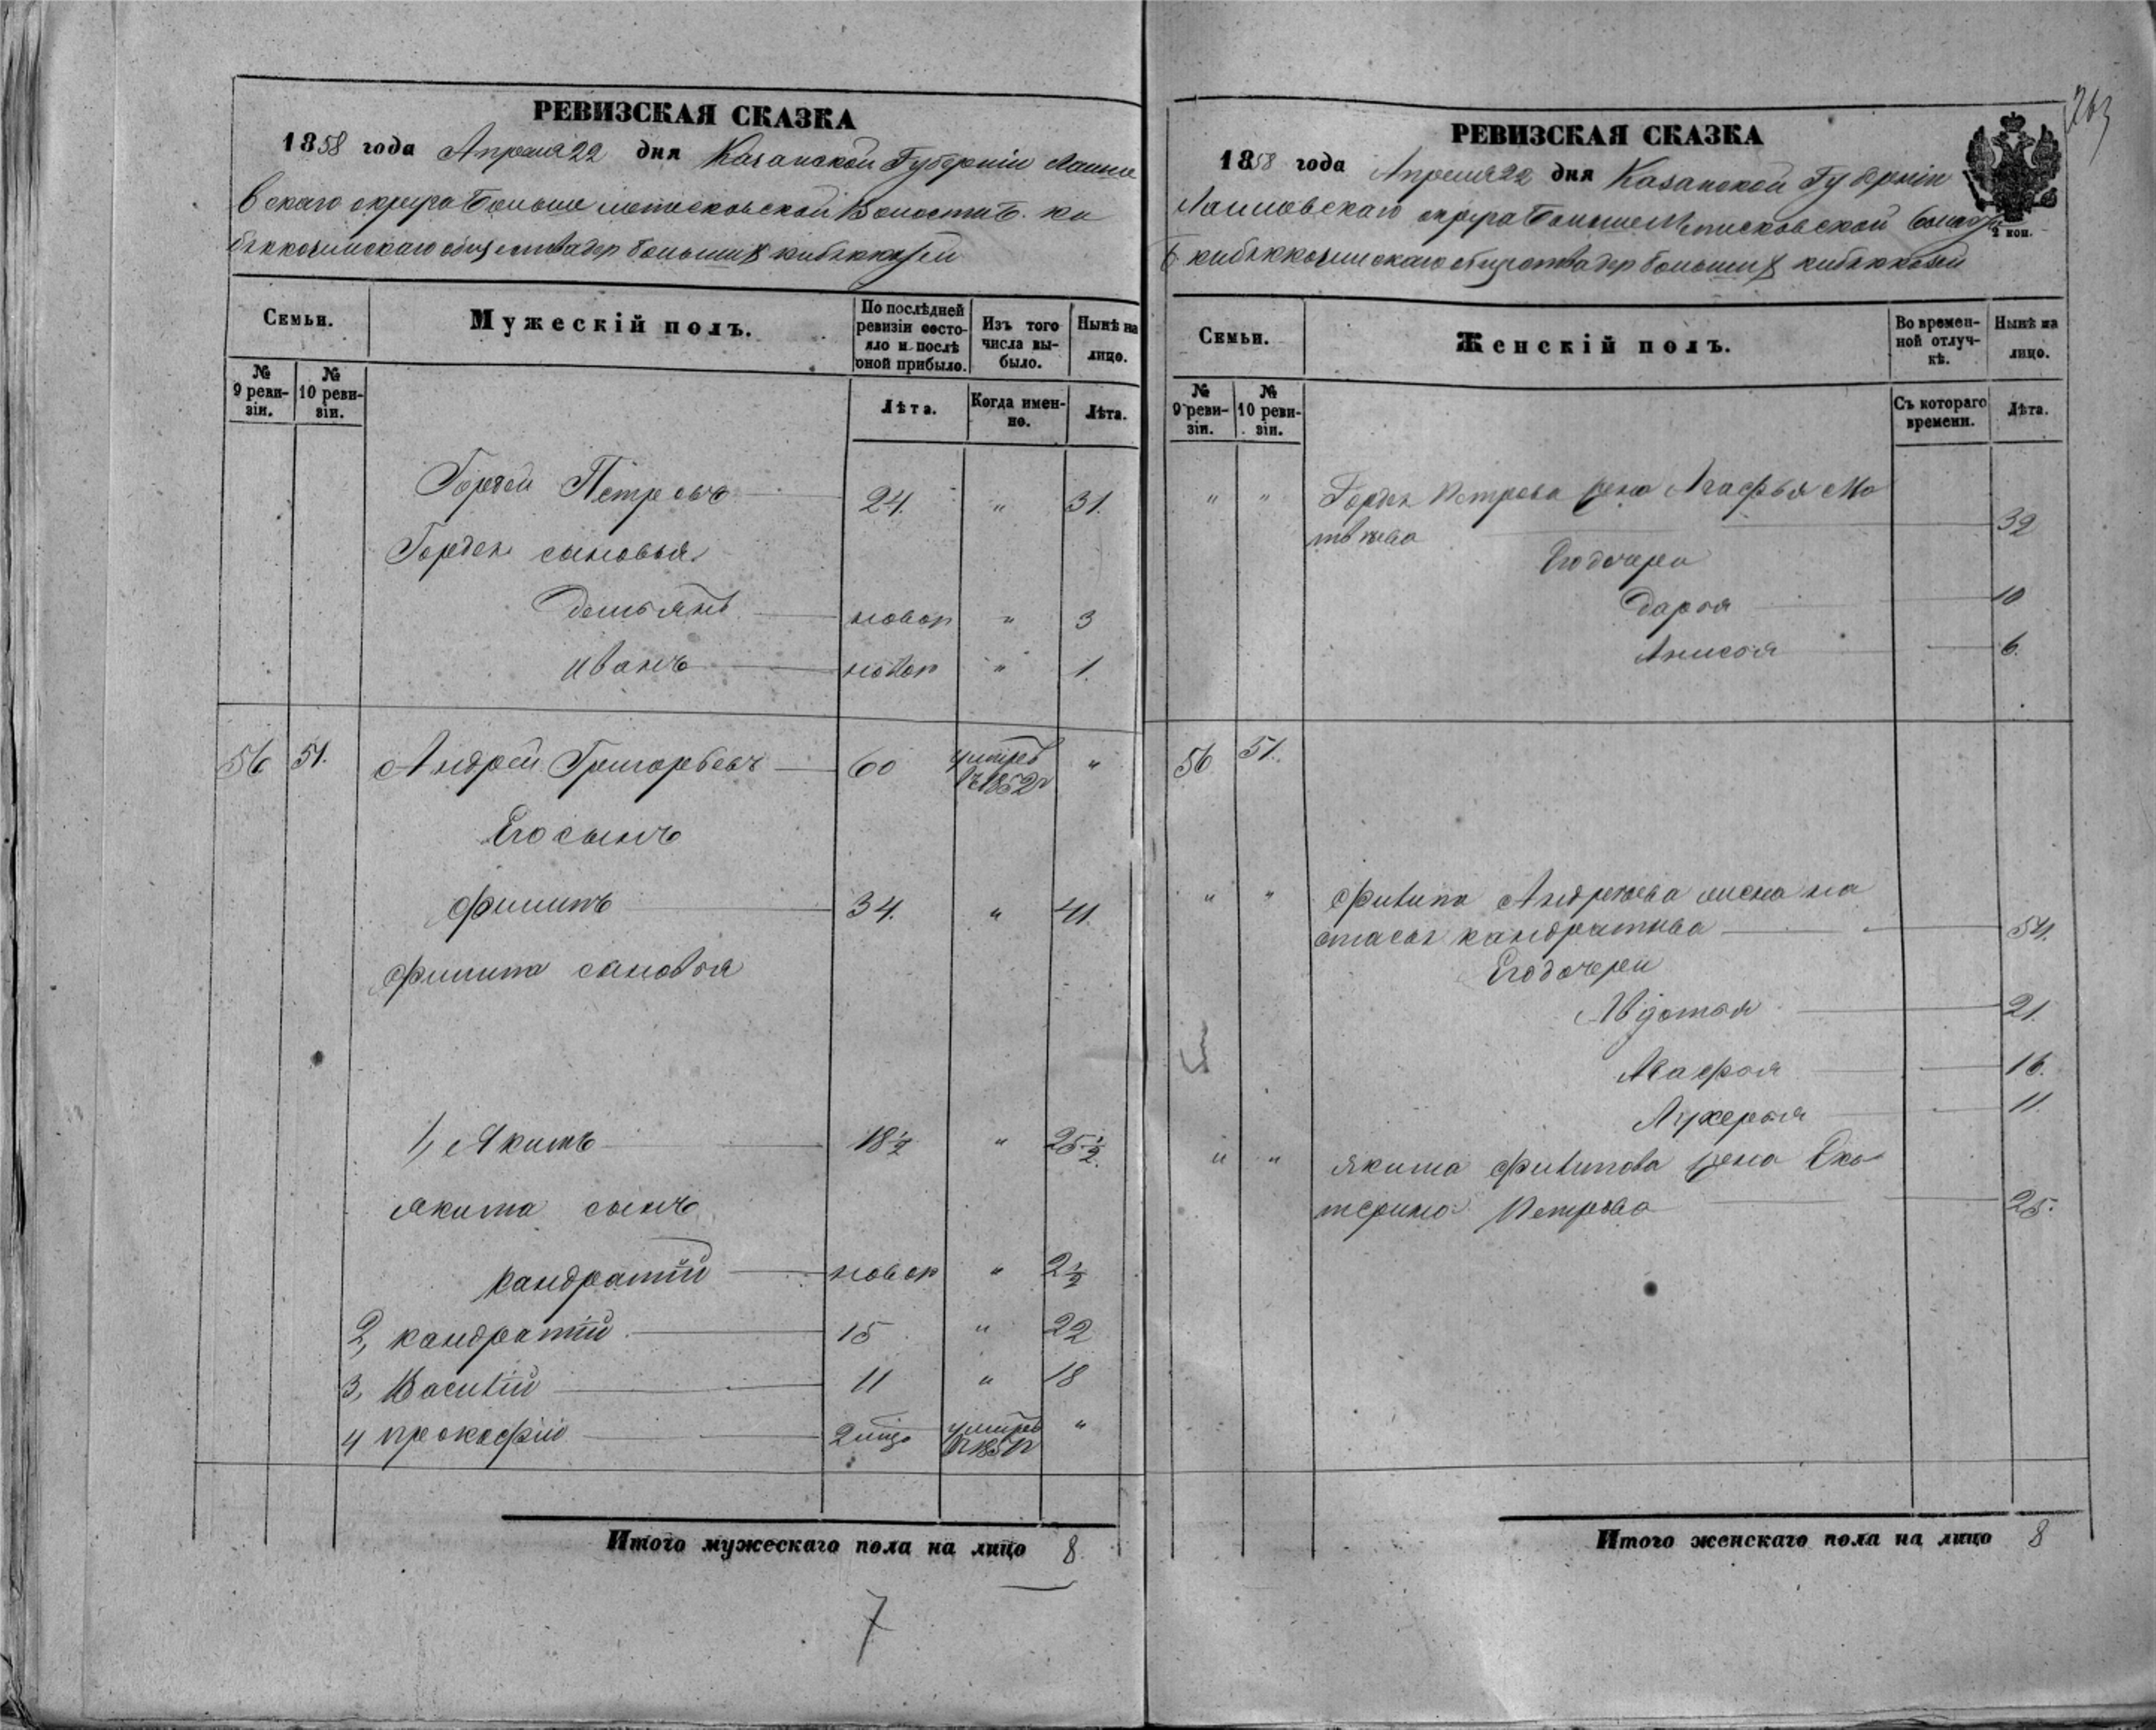 РЕВИЗСКАЯ СКАЗКА
1858 года Апреля 22 дня Казанской Губерніи Лаише
вскаго округа Больше метесковской Волости Б. ки
бяккозинскаго общества дер больших кибяккозей
Семьи.
Мужескій полъ.
По послѣдней ревизіи состояло и послѣ оной прибыло.
Изъ того числа выбыло.
Нынѣ на лицо.
№ 9 ревизіи.
№ 10 ревизіи.
Лѣта.
Когда именно.
Лѣта.
Гордей Петровъ 24. " 31.
Гордея сыновья
Демьянъ новор " 3
иванъ новор " 1.
56 51. Андрей Григорьевъ 60 умеръ въ 1852г "
Его сынъ
Филипъ 34. " 41.
Филипа сыновья
1, Якимъ 18½ " 25½.
Якима сынъ
кандратій новор " 2½
2, кандратій 15 " 22
3, Василій 11 " 18
4 прокофій 2 умеръ 1851г "
Итого мужескаго пола на лицо 8.
7
263
РЕВИЗСКАЯ СКАЗКА
1858 года Апреля 22 дня Казанской Губерніи
Лаишевскаго округа Больше Метисковской волости
Б кибяккозинскаго общества дер больших кибяккозей
2 коп.
Семьи.
Женскій полъ.
Во временной отлучкѣ.
Нынѣ на лицо.
№ 9 ревизіи.
№ 10 ревизіи.
Съ котораго времени.
Лѣта.
" " Гордея Петрова жена Агафья Ма
твеева 32
Его дочери
Дарья 10
Анисья 6.
56 51.
" " Филипа Андреева жена на
стасья кандратьева 54.
Его дочери
Авдотья 21.
Агафья 16.
Лукерья 11.
" " якима Филипова жена Ека
терина Петрова 25.
Итого женскаго пола на лицо 8